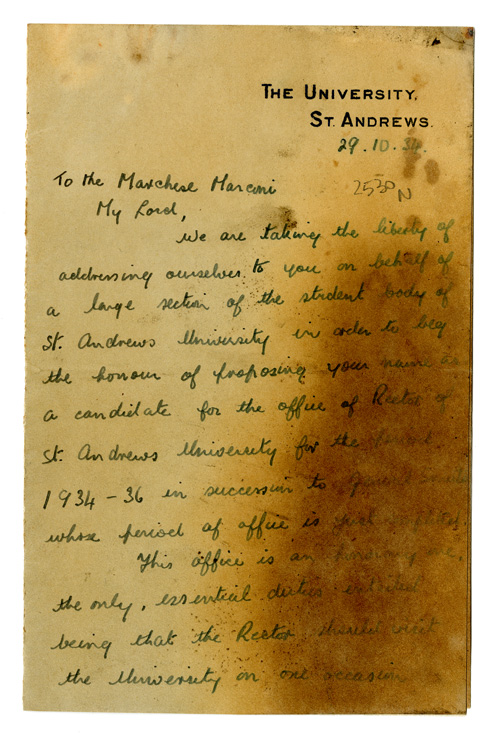 THE UNIVERSITY,
ST. ANDREWS.
29.10.34.
To the Marchese Marconi
2530 N
My Lord,
We are taking the liberty of
addressing ourselves to you on behalf of
a large section of the student body of
St. Andrews University in order to beg
the honour of proposing your name as
a candidate for the office of Rector of
St. Andrews University for the period
1934-36 in succession to General Smuts
whose period of office is just completed.
This office is an honorary one,
the only, essential duties entailed
being that the Rector should visit
the University on one occasion